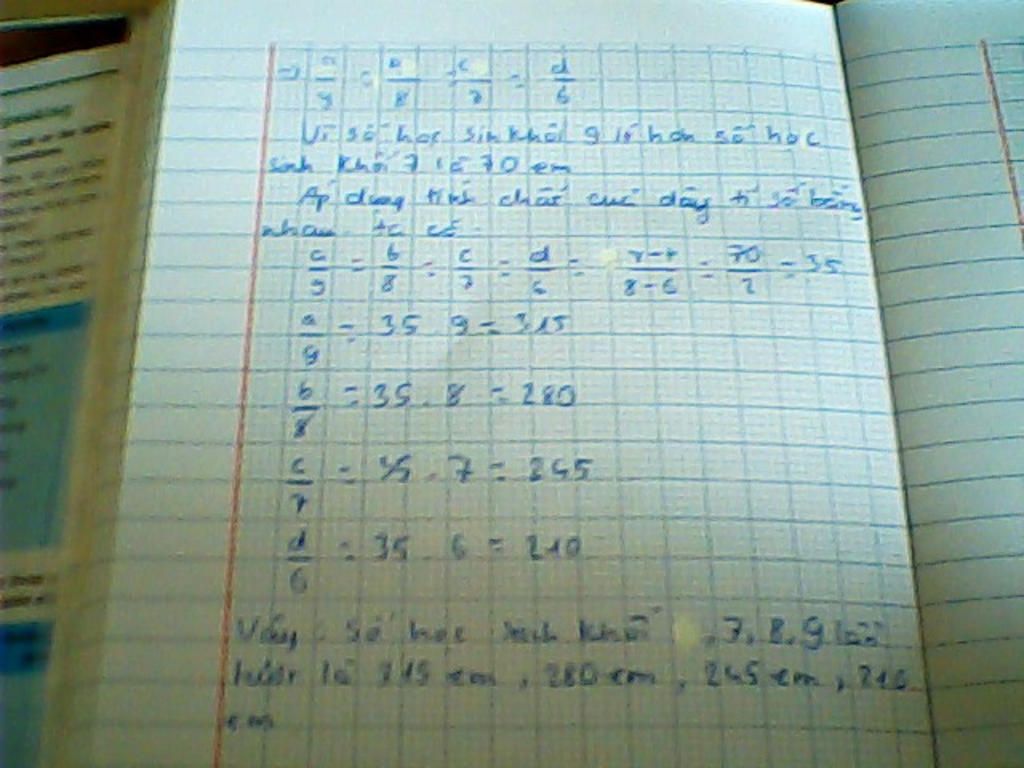 => a/9 = b/8 = c/7 = d/6
Vì số học sinh khối 9 ít hơn số học
sinh khối 7 là 70 em
Áp dụng tính chất của dãy tỉ số bằng
nhau ta có
a/9 = b/8 = c/7 = d/6 = /8-6 = 70/2 = 35
a/9 = 35 . 9 = 315
b/8 = 35 . 8 = 280
c/7 = 35 . 7 = 245
d/6 = 35 . 6 = 210
Vậy : số học sinh khối , 7, 8, 9 lần
lượt là 315 em , 280 em , 245 em , 210
em